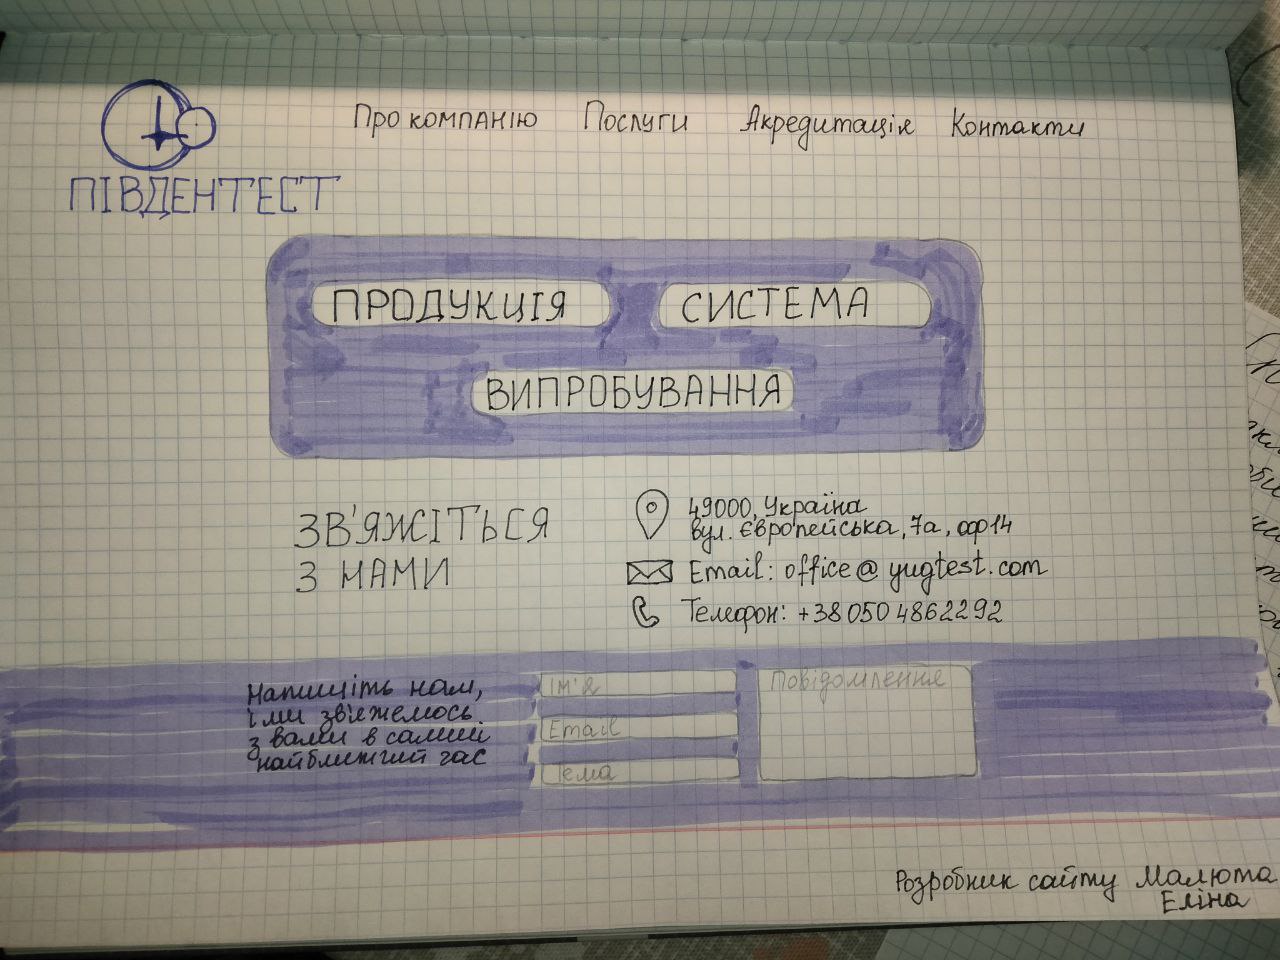 Про компанію Послуги Акредитація Контакти
ПІВДЕНТЕСТ
ПРОДУКЦІЯ СИСТЕМА
ВИПРОБУВАННЯ
ЗВ'ЯЖІТЬСЯ
З НАМИ
49000, Україна
вул. Європейська, 7а, оф14
Email: office@yugtest.com
Телефон: +38 050 4862292
Напишіть нам,
і ми зв'яжемось
з вами в самий
найближчий час
Ім'я
Email
Тема
Повідомлення
Розробник сайту Малюта
Еліна